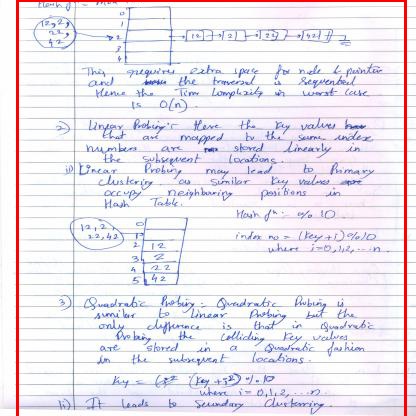 Hash fn = 
12, 2,
22,
42
0
1
2
3
4
12 → 2 → 22 → 42
This requires extra space for node & pointer
and the traversal is sequential
Hence the Time Complexity in worst case
is O(n).
2) Linear Probing: Here the key values
that are mapped to the same index
numbers are stored linearly in
the subsequent locations.
ii) Linear Probing may lead to Primary
clustering as similar key values
occupy neighbouring positions in
Hash Table.
Hash fn: % 10
12, 2,
22, 42
0
1
2 12
3 2
4 22
5 42
index no = (key + i) % 10
where i = 0, 1, 2, ... n.
3) Quadratic Probing: Quadratic Probing is
similar to Linear Probing but the
only difference is that in Quadratic
Probing the colliding key values
are stored in a Quadratic fashion
in the subsequent locations.
Key = (key + i²) % 10
where i = 0, 1, 2, ... n
ii) It leads to Secondary Clustering.